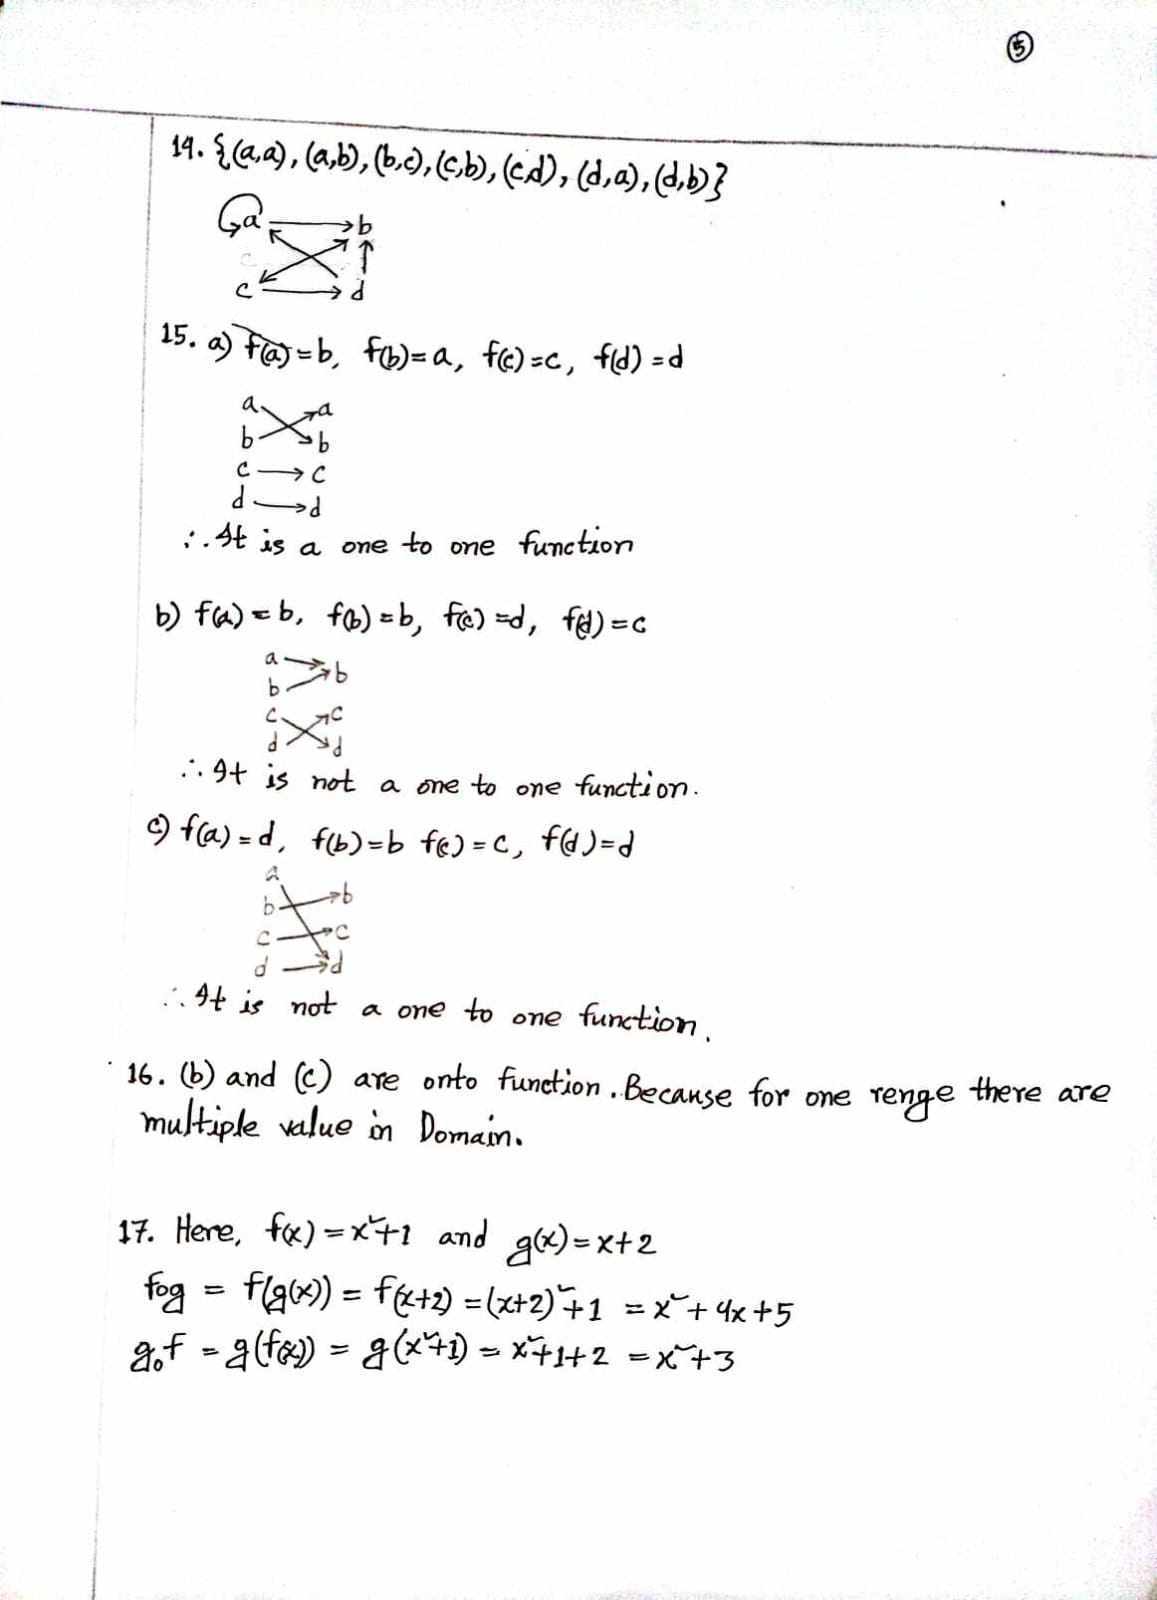 5
14. {(a,a), (a,b), (b,c), (c,b), (c,d), (d,a), (d,b)}
a b
c d
15. a) f(a) = b, f(b) = a, f(c) = c, f(d) = d
a a
b b
c c
d d
∴ It is a one to one function
b) f(a) = b, f(b) = b, f(c) = d, f(d) = c
a
b b
c c
d d
∴ It is not a one to one function.
c) f(a) = d, f(b) = b f(c) = c, f(d) = d
a
b b
c c
d d
∴ It is not a one to one function.
16. (b) and (c) are onto function. Because for one renge there are
multiple value in Domain.
17. Here, f(x) = x²+1 and g(x) = x+2
fog = f(g(x)) = f(x+2) = (x+2)²+1 = x²+4x+5
gof = g(f(x)) = g(x²+1) = x²+1+2 = x²+3